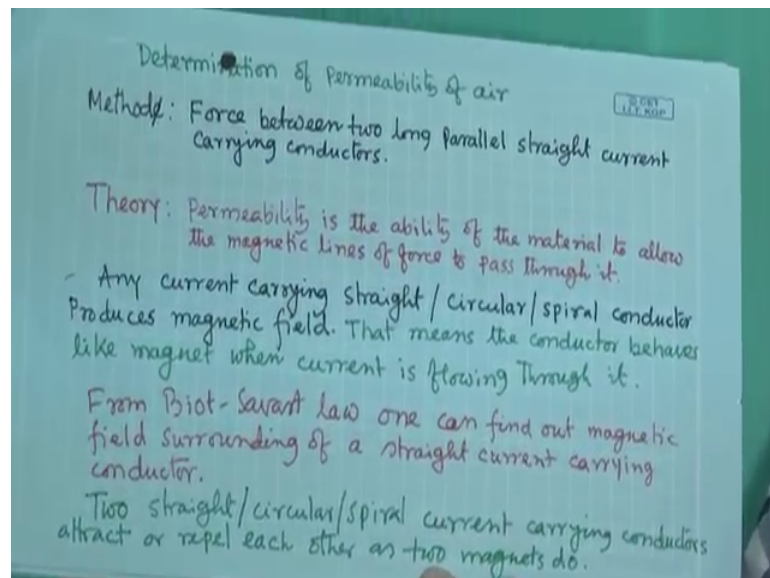 Determination of Permeability of air
Method: Force between two long Parallel straight current
Carrying conductors.
Theory: Permeability is the ability of the material to allow
the magnetic lines of force to pass through it.
- Any current carrying straight/circular/spiral conductor
Produces magnetic field. That means the conductor behaves
like magnet when current is flowing through it.
From Biot-Savart law one can find out magnetic
field surrounding of a straight current carrying
conductor.
Two straight/circular/spiral current carrying conductors
attract or repel each other as two magnets do.